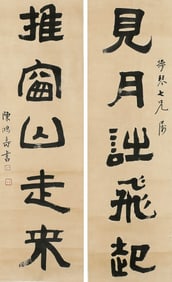 見月飛起
七兄屬
推窗山走来
陳鴻壽書